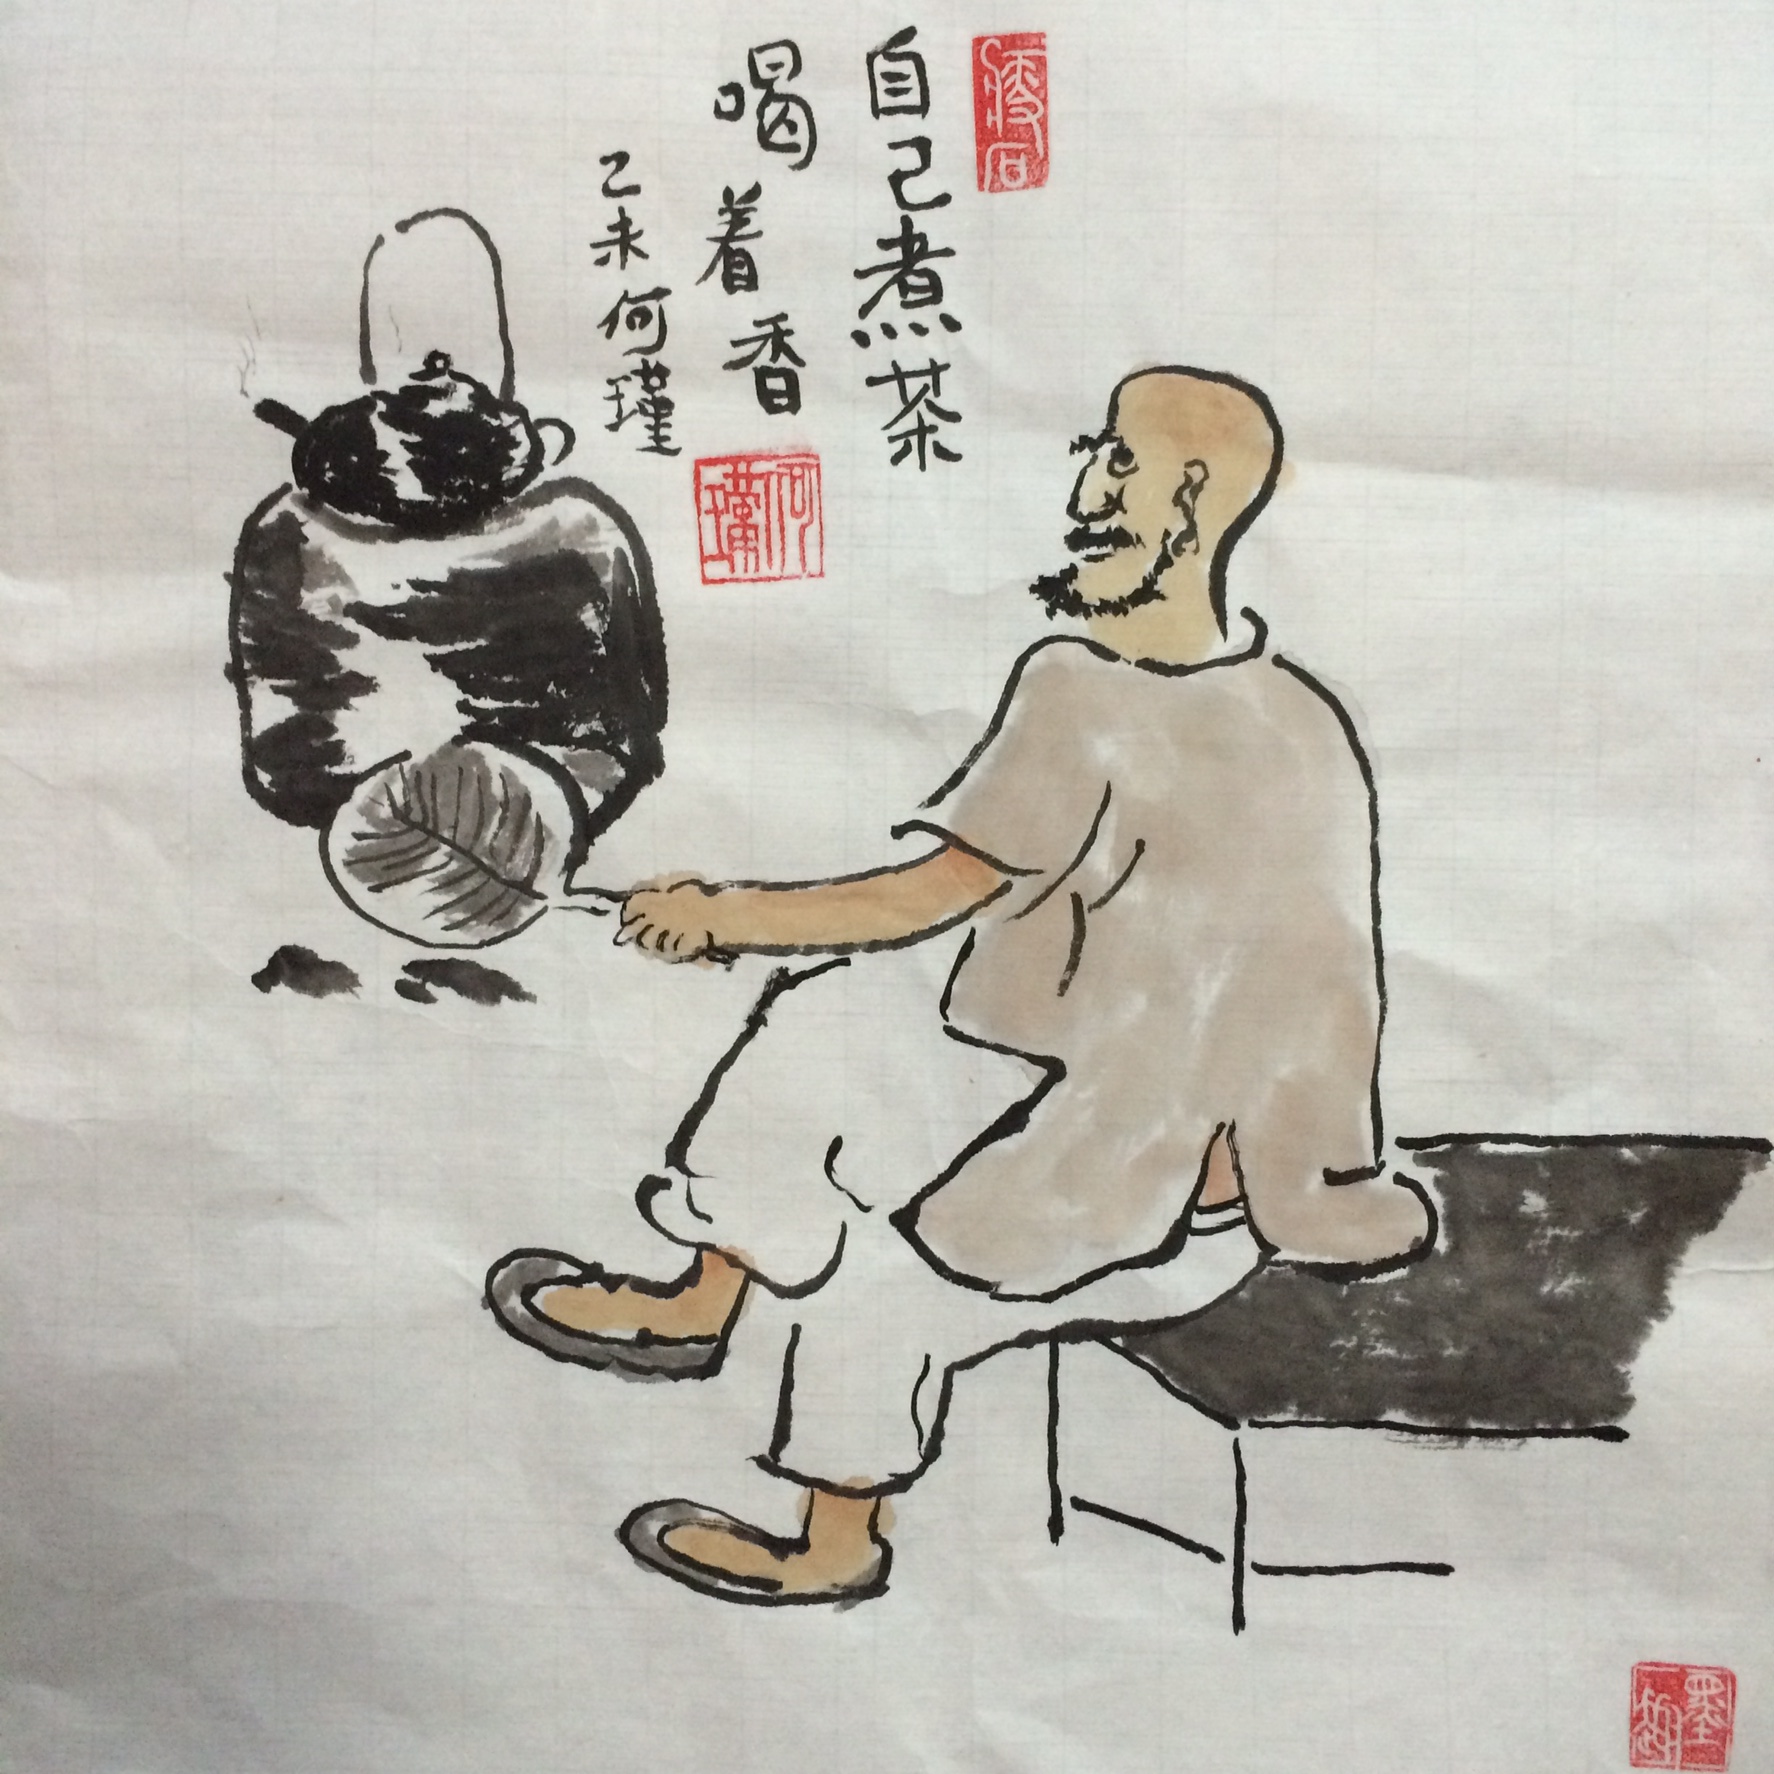 自己煮茶
喝着香
乙未何瑾
何瑾